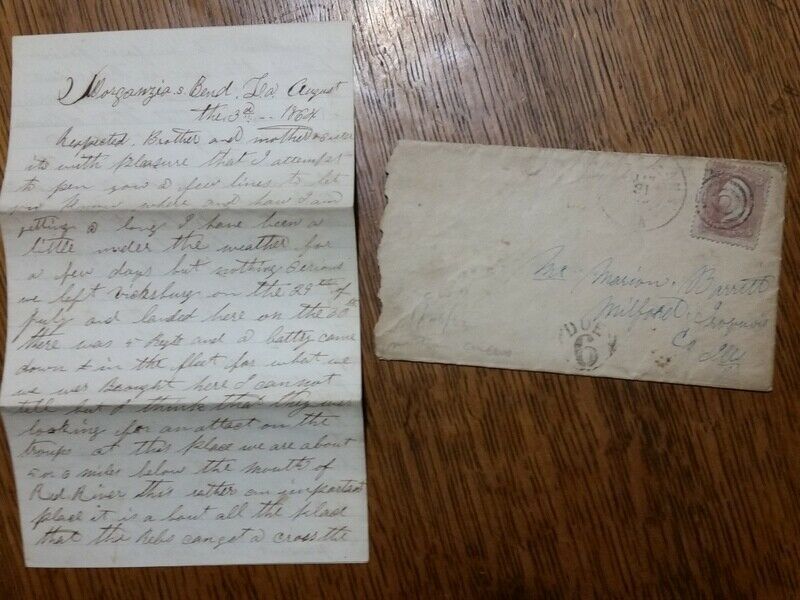 Morganzia, s. Bend. La. August
the 3d -- 1864
Respected, Brother and mother
its with pleasure that I attempt
to pen you a few lines to let
you know where and how I am
getting a long I have been a
little under the weather for
a few days but nothing Serious
we left Vicksburg on the 29th of
July and landed here on the 30th
there was 5 Regts and a battery came
down in the fleet for what we
we wer Bought here I cannot
tell but I think that they wer
looking for an attact on the
troops at this place we are about
5 or 6 miles below the mouth of
Red River this rather an important
place it is a bout all the place
that the Rebs can get a cross the
31
Mr Marion. Barrett
Milford Iroquois
Co Ill
DUE
6